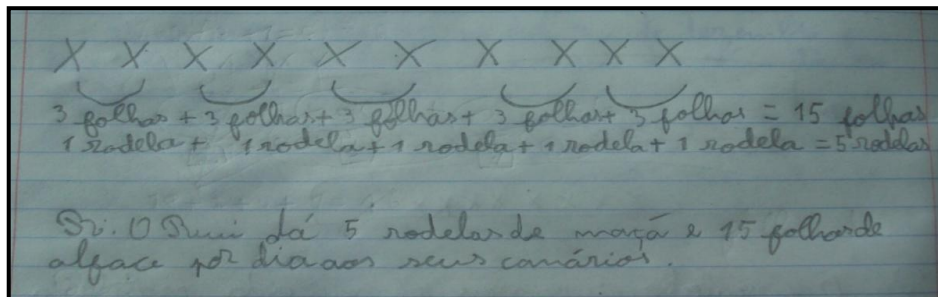 X X X X X X X X X X
3 folhas + 3 folhas + 3 folhas + 3 folhas + 3 folhas = 15 folhas
1 rodela + 1 rodela + 1 rodela + 1 rodela + 1 rodela = 5 rodelas
R: O Rui dá 5 rodelas de maçã e 15 folhas de
alface por dia aos seus canários.